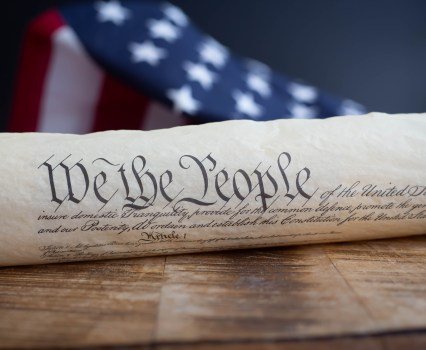 We the People of the United S
insure domestic Tranquility, provide for the common defence, promote the ge
and our Posterity, do ordain and establish this Constitution for the United Sta
Article. I